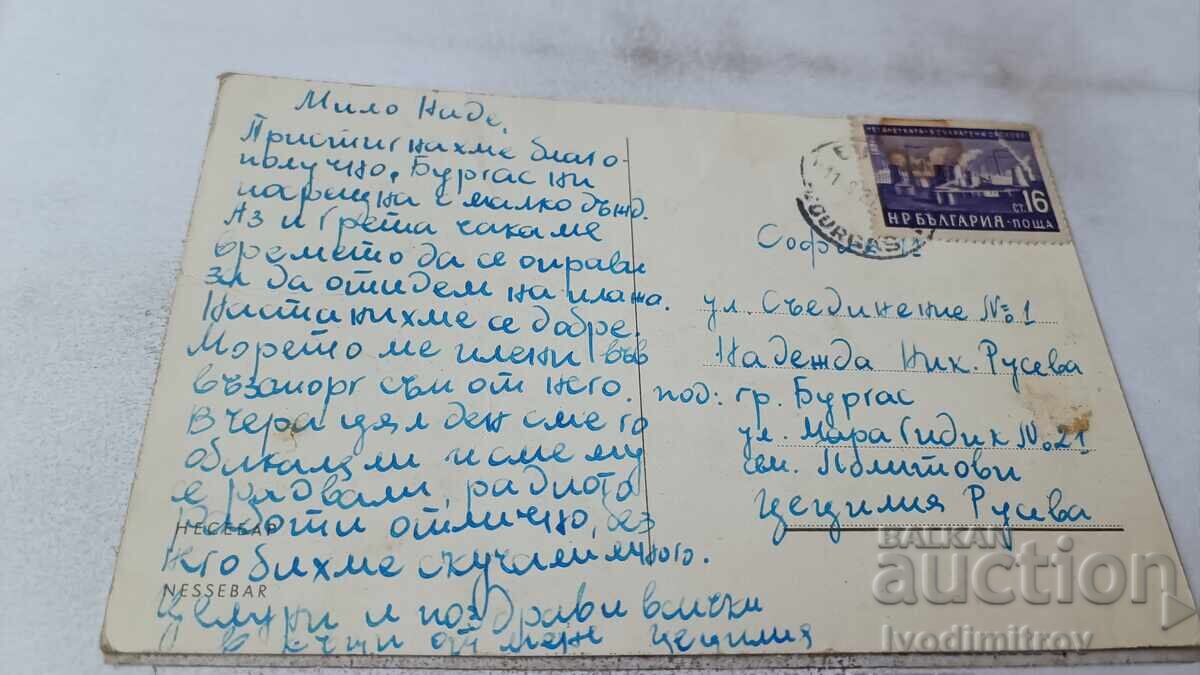 Мило Наде,
Пристигнахме благо-
получно, Бургас ни
посрещна с малко дъжд.
Аз и Грета чакаме
времето да се оправи
за да отидем на плажа.
Настанихме се добре.
Морето ме плени във
възторг съм от него.
Вчера цял ден сме го
обикаляли и сме му
се радвали, радиото
работи отлично, без
него бихме скучали много.
Целуни и поздрави всички
в къщи от мене Цецилия
НЕСЕБЪР
NESSEBAR
BOURGAS
СТ. 16
НР БЪЛГАРИЯ·ПОЩА
София
ул. Съединение №1
Надежда Ник. Русева
под: гр. Бургас
ул. Мара Гидик №21
сем. Политови
Цецилия Русева
BALKAN
auction
Ivodimitrov